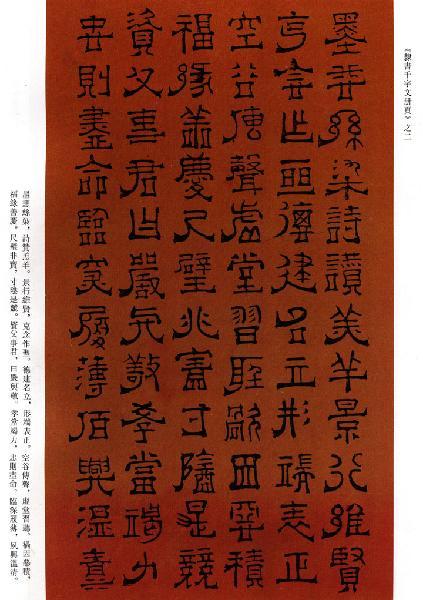 《隸書千字文册頁》之二
墨悲絲染詩讚羔羊景行維賢
克念作聖德建名立形端表正
空谷傳聲虛堂習聽禍因惡積
福緣善慶尺璧非寶寸陰是競
資父事君曰嚴與敬孝當竭力
忠則盡命臨深履薄夙興溫凊
墨悲絲染，詩讚羔羊。景行維賢，克念作聖。德建名立，形端表正。空谷傳聲，虛堂習聽。禍因惡積，
福緣善慶。尺璧非寶，寸陰是競。資父事君，曰嚴與敬。孝當竭力，忠則盡命。臨深履薄，夙興溫凊。